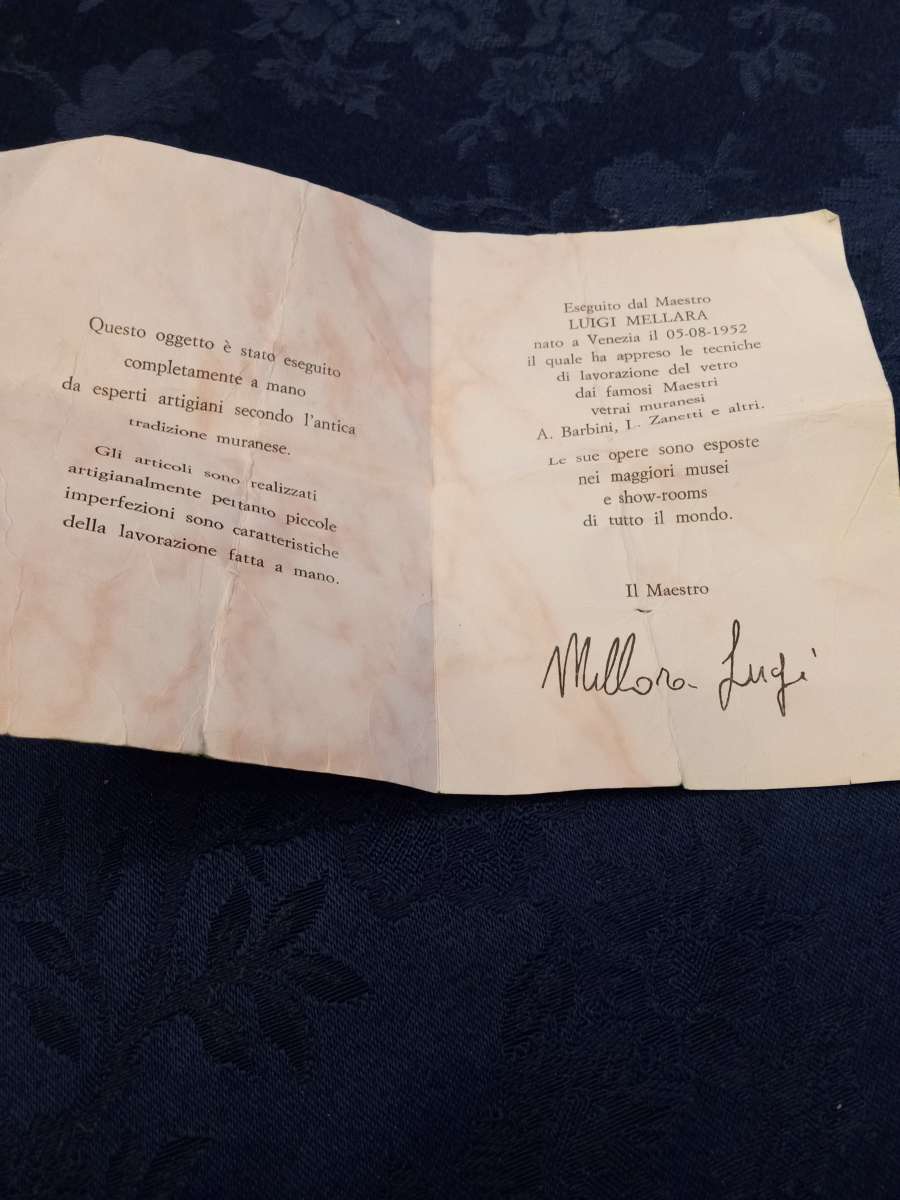 Questo oggetto è stato eseguito
completamente a mano
da esperti artigiani secondo l'antica
tradizione muranese.
Gli articoli sono realizzati
artigianalmente pertanto piccole
imperfezioni sono caratteristiche
della lavorazione fatta a mano.
Eseguito dal Maestro
LUIGI MELLARA
nato a Venezia il 05-08-1952
il quale ha appreso le tecniche
di lavorazione del vetro
dai famosi Maestri
vetrai muranesi
A. Barbini, L. Zanetti e altri.
Le sue opere sono esposte
nei maggiori musei
e show-rooms
di tutto il mondo.
Il Maestro
Mellara Luigi